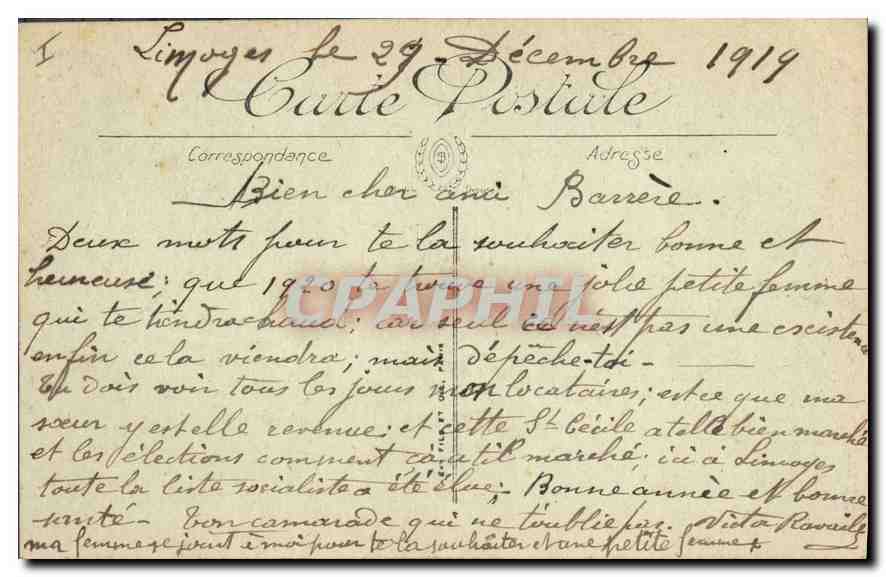 I
Limoges le 29 Décembre 1919
Carte Postale
Correspondance
Adresse
Bien cher ami Barrère.
Deux mots pour te la souhaiter bonne et
heureuse; que 1920 te trouve une jolie petite femme
qui te tiendra chaud; car seul ce n'est pas une existence
enfin cela viendra; mais dépêche-toi -
Tu dois voir tous les jours mon locataires; est ce que ma
sœur y est elle revenue; et cette Ste Cécile a telle bien marché
et les élections comment ça a til marché; ici à Limoges
toute la liste socialiste a été élue; Bonne année et bonne
santé - Ton camarade qui ne t'oublie pas. Victor
ma femme se joint à moi pour te la souhaiter et une petite femme
CPAPHIL
FILS ET